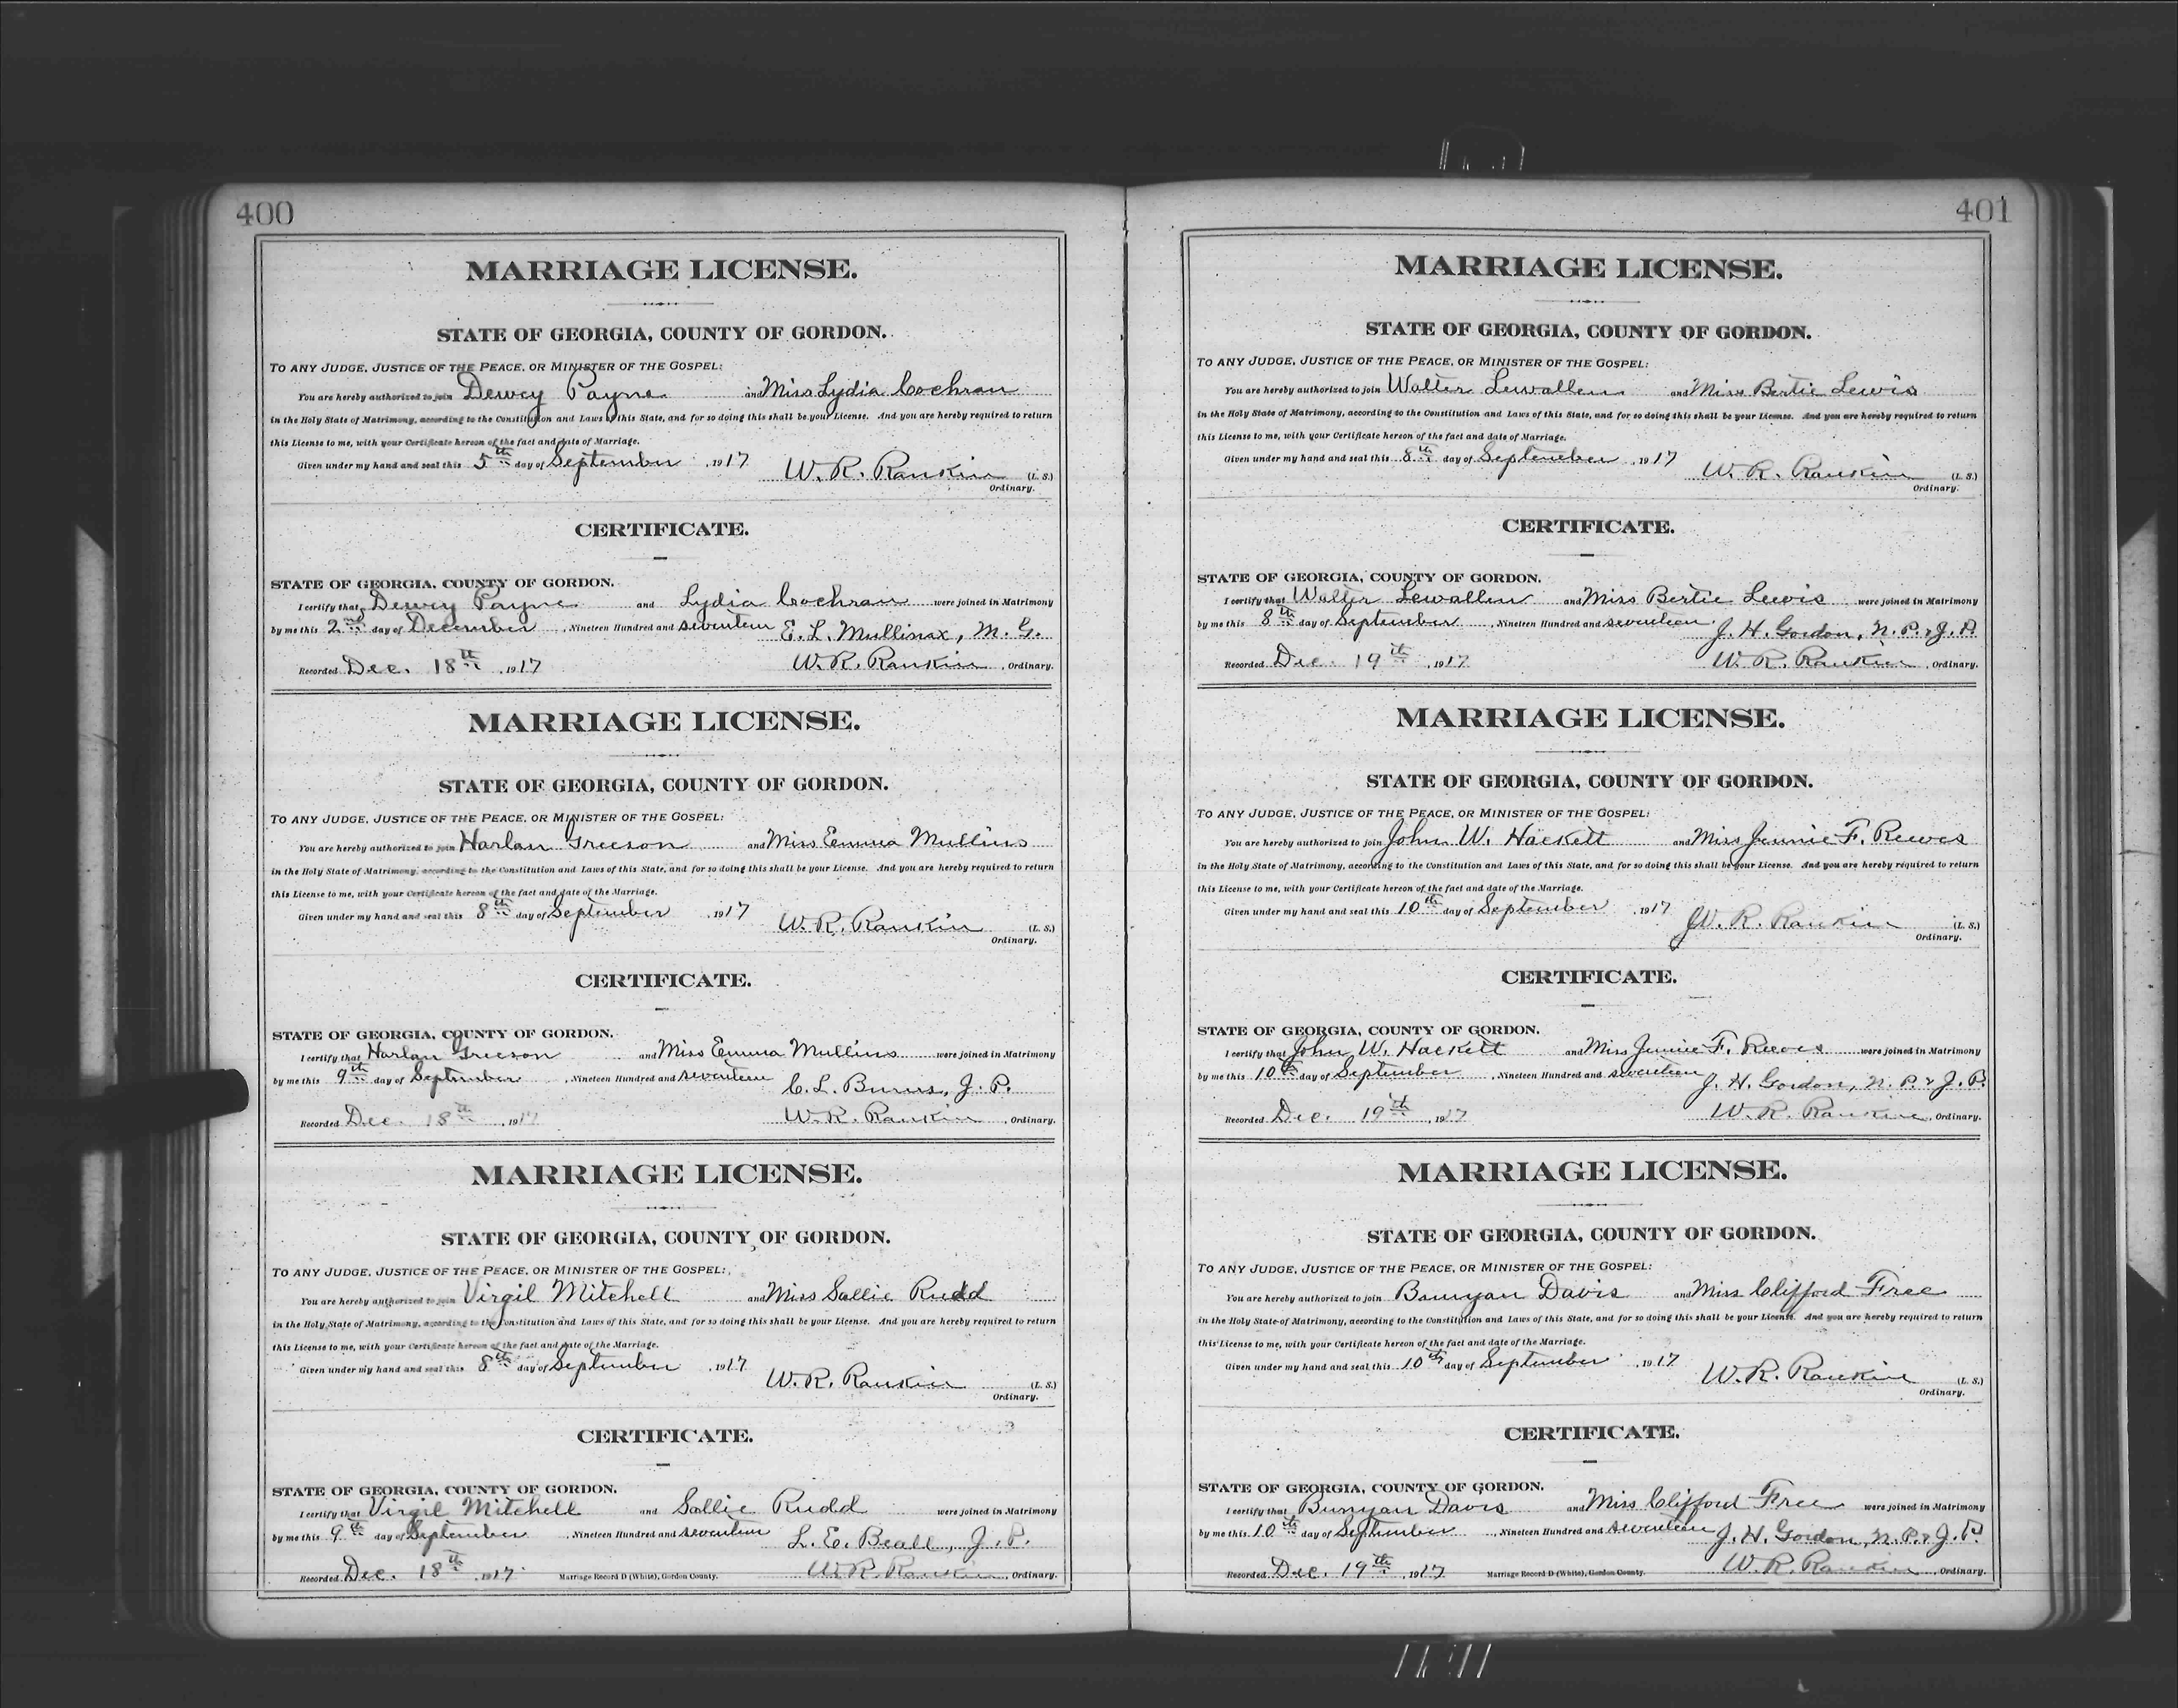 400
MARRIAGE LICENSE.
STATE OF GEORGIA, COUNTY OF GORDON.
TO ANY JUDGE, JUSTICE OF THE PEACE, OR MINISTER OF THE GOSPEL:
You are hereby authorized to join Dewey Payne and Miss Lydia Cochran
in the Holy State of Matrimony, according to the Constitution and Laws of this State, and for so doing this shall be your License. And you are hereby required to return
this License to me, with your Certificate hereon of the fact and date of Marriage.
Given under my hand and seal this 5th day of September, 1917 W. R. Rankin (L. S.)
Ordinary.
CERTIFICATE.
STATE OF GEORGIA, COUNTY OF GORDON.
I certify that Dewey Payne and Lydia Cochran were joined in Matrimony
by me this 2nd day of December, Nineteen Hundred and seventeen E. L. Mullinax, M. G.
Recorded Dec. 18th, 1917 W. R. Rankin, Ordinary.
MARRIAGE LICENSE.
STATE OF GEORGIA, COUNTY OF GORDON.
TO ANY JUDGE, JUSTICE OF THE PEACE, OR MINISTER OF THE GOSPEL:
You are hereby authorized to join Harlan Greeson and Miss Emma Mullins
in the Holy State of Matrimony, according to the Constitution and Laws of this State, and for so doing this shall be your License. And you are hereby required to return
this License to me, with your Certificate hereon of the fact and date of the Marriage.
Given under my hand and seal this 8th day of September, 1917 W. R. Rankin (L. S.)
Ordinary.
CERTIFICATE.
STATE OF GEORGIA, COUNTY OF GORDON.
I certify that Harlan Greeson and Miss Emma Mullins were joined in Matrimony
by me this 9th day of September, Nineteen Hundred and seventeen C. L. Burns, J. P.
Recorded Dec. 18th, 1917 W. R. Rankin, Ordinary.
MARRIAGE LICENSE.
STATE OF GEORGIA, COUNTY OF GORDON.
TO ANY JUDGE, JUSTICE OF THE PEACE, OR MINISTER OF THE GOSPEL:
You are hereby authorized to join Virgil Mitchell and Miss Sallie Rudd
in the Holy State of Matrimony, according to the Constitution and Laws of this State, and for so doing this shall be your License. And you are hereby required to return
this License to me, with your Certificate hereon of the fact and date of the Marriage.
Given under my hand and seal this 8th day of September, 1917 W. R. Rankin (L. S.)
Ordinary.
CERTIFICATE.
STATE OF GEORGIA, COUNTY OF GORDON.
I certify that Virgil Mitchell and Sallie Rudd were joined in Matrimony
by me this 9th day of September, Nineteen Hundred and seventeen L. E. Beall, J. P.
Recorded Dec. 18th, 1917 Marriage Record D (White), Gordon County. W. R. Rankin, Ordinary.
401
MARRIAGE LICENSE.
STATE OF GEORGIA, COUNTY OF GORDON.
TO ANY JUDGE, JUSTICE OF THE PEACE, OR MINISTER OF THE GOSPEL:
You are hereby authorized to join Walter Lewallen and Miss Bertie Lewis
in the Holy State of Matrimony, according to the Constitution and Laws of this State, and for so doing this shall be your License. And you are hereby required to return
this License to me, with your Certificate hereon of the fact and date of Marriage.
Given under my hand and seal this 8th day of September, 1917 W. R. Rankin (L. S.)
Ordinary.
CERTIFICATE.
STATE OF GEORGIA, COUNTY OF GORDON.
I certify that Walter Lewallen and Miss Bertie Lewis were joined in Matrimony
by me this 8th day of September, Nineteen Hundred and seventeen J. H. Gordon, N. P. & J. P.
Recorded Dec. 19th, 1917 W. R. Rankin, Ordinary.
MARRIAGE LICENSE.
STATE OF GEORGIA, COUNTY OF GORDON.
TO ANY JUDGE, JUSTICE OF THE PEACE, OR MINISTER OF THE GOSPEL:
You are hereby authorized to join John W. Hackett and Miss Jennie F. Reeves
in the Holy State of Matrimony, according to the Constitution and Laws of this State, and for so doing this shall be your License. And you are hereby required to return
this License to me, with your Certificate hereon of the fact and date of the Marriage.
Given under my hand and seal this 10th day of September, 1917 W. R. Rankin (L. S.)
Ordinary.
CERTIFICATE.
STATE OF GEORGIA, COUNTY OF GORDON.
I certify that John W. Hackett and Miss Jennie F. Reeves were joined in Matrimony
by me this 10th day of September, Nineteen Hundred and seventeen J. H. Gordon, N. P. & J. P.
Recorded Dec. 19th, 1917 W. R. Rankin, Ordinary.
MARRIAGE LICENSE.
STATE OF GEORGIA, COUNTY OF GORDON.
TO ANY JUDGE, JUSTICE OF THE PEACE, OR MINISTER OF THE GOSPEL:
You are hereby authorized to join Bunyan Davis and Miss Clifford Free
in the Holy State of Matrimony, according to the Constitution and Laws of this State, and for so doing this shall be your License. And you are hereby required to return
this License to me, with your Certificate hereon of the fact and date of the Marriage.
Given under my hand and seal this 10th day of September, 1917 W. R. Rankin (L. S.)
Ordinary.
CERTIFICATE.
STATE OF GEORGIA, COUNTY OF GORDON.
I certify that Bunyan Davis and Miss Clifford Free were joined in Matrimony
by me this 10th day of September, Nineteen Hundred and seventeen J. H. Gordon, N. P. & J. P.
Recorded Dec. 19th, 1917 Marriage Record D (White), Gordon County. W. R. Rankin, Ordinary.